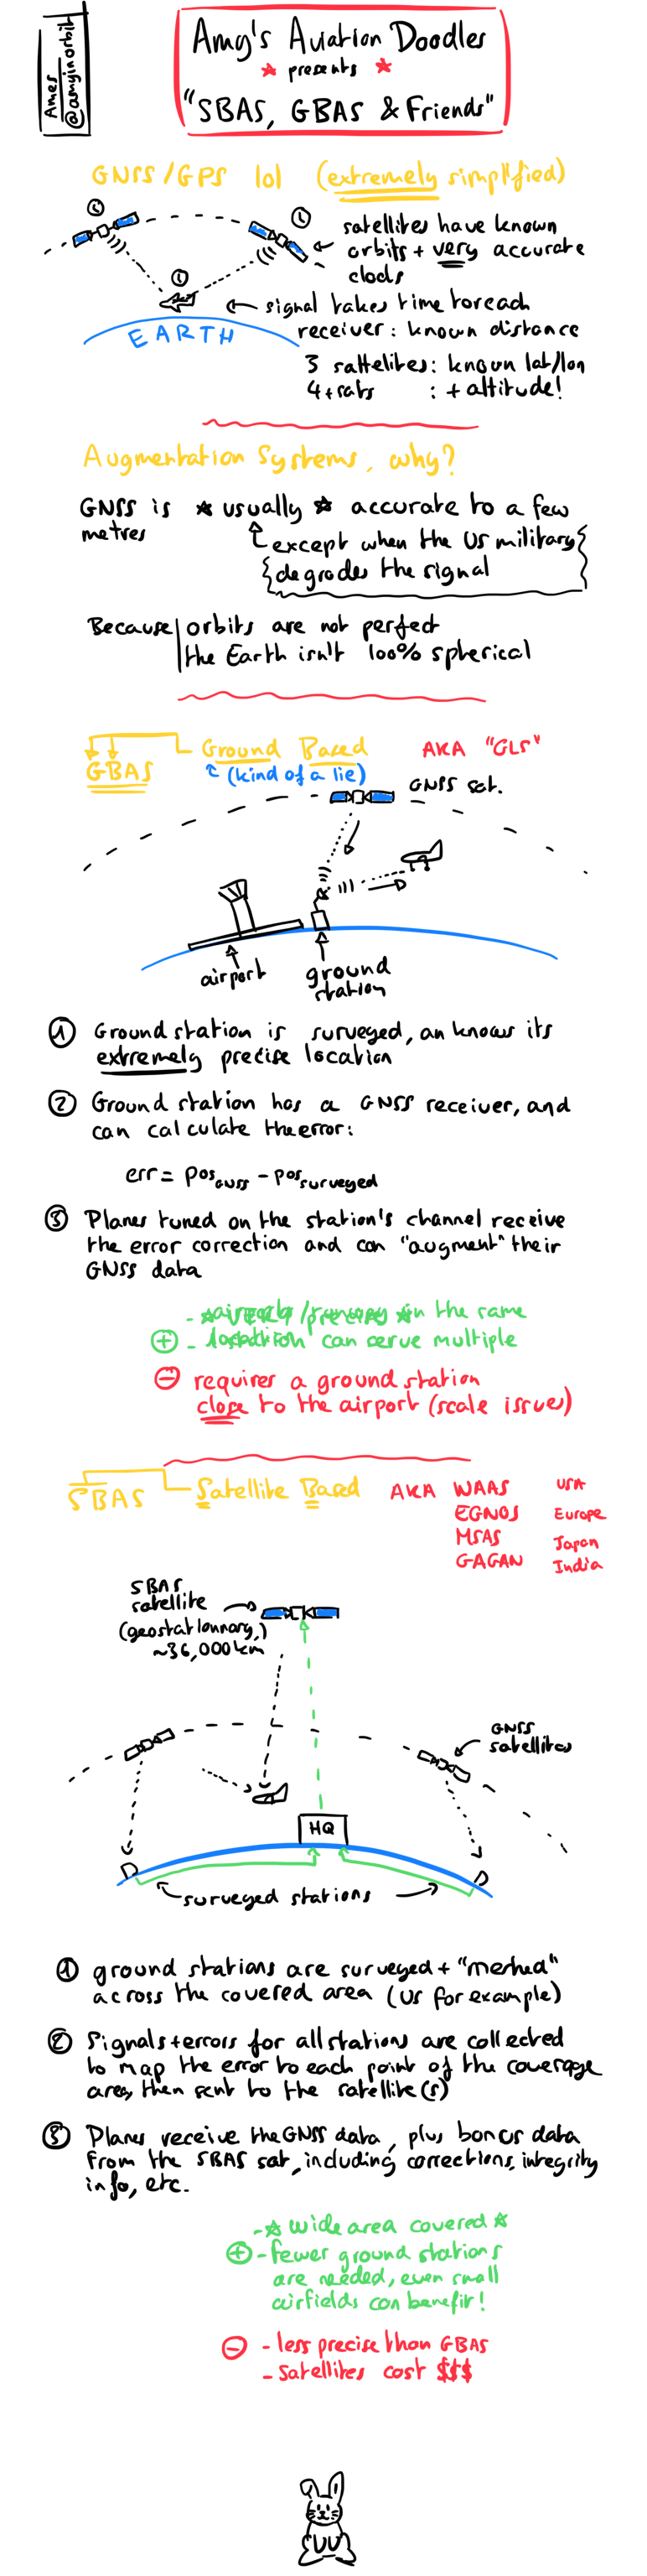 Ames
@amyinorbit
Amy's Aviation Doodles
presents
"SBAS, GBAS & Friends"
GNSS/GPS lol (extremely simplified)
satellites have known
orbits + very accurate
clocks
signal takes time to reach
receiver: known distance
EARTH
3 sattelites: known lat/lon
4+ sats : + altitude!
Augmentation Systems, why?
GNSS is usually accurate to a few
metres
except when the US military
degrades the signal
Because orbits are not perfect
the Earth isn't 100% spherical
GBAS Ground Based AKA "GLS"
(kind of a lie)
GNSS sat.
airport
ground
station
1 Ground station is surveyed, an knows its
extremely precise location
2 Ground station has a GNSS receiver, and
can calculate the error:
err = pos GNSS - pos surveyed
3 Planes tuned on the station's channel receive
the error correction and can "augment" their
GNSS data
- VERY precise in the same
+ - can serve multiple
- requires a ground station
close to the airport (scale issue)
SBAS Satellite Based AKA WAAS USA
EGNOS Europe
MSAS Japan
GAGAN India
SBAS
satellite
(geostationnary,)
~36,000km
GNSS
satellites
HQ
surveyed stations
1 ground stations are surveyed + "meshed"
across the covered area (US for example)
2 Signals + errors for all stations are collected
to map the error to each point of the coverage
area, then sent to the satellite(s)
3 Planes receive the GNSS data, plus bonus data
from the SBAS sat, including corrections, integrity
info, etc.
- wide area covered
+ - fewer ground stations
are needed, even small
airfields can benefit!
- - less precise than GBAS
- satellites cost $$$